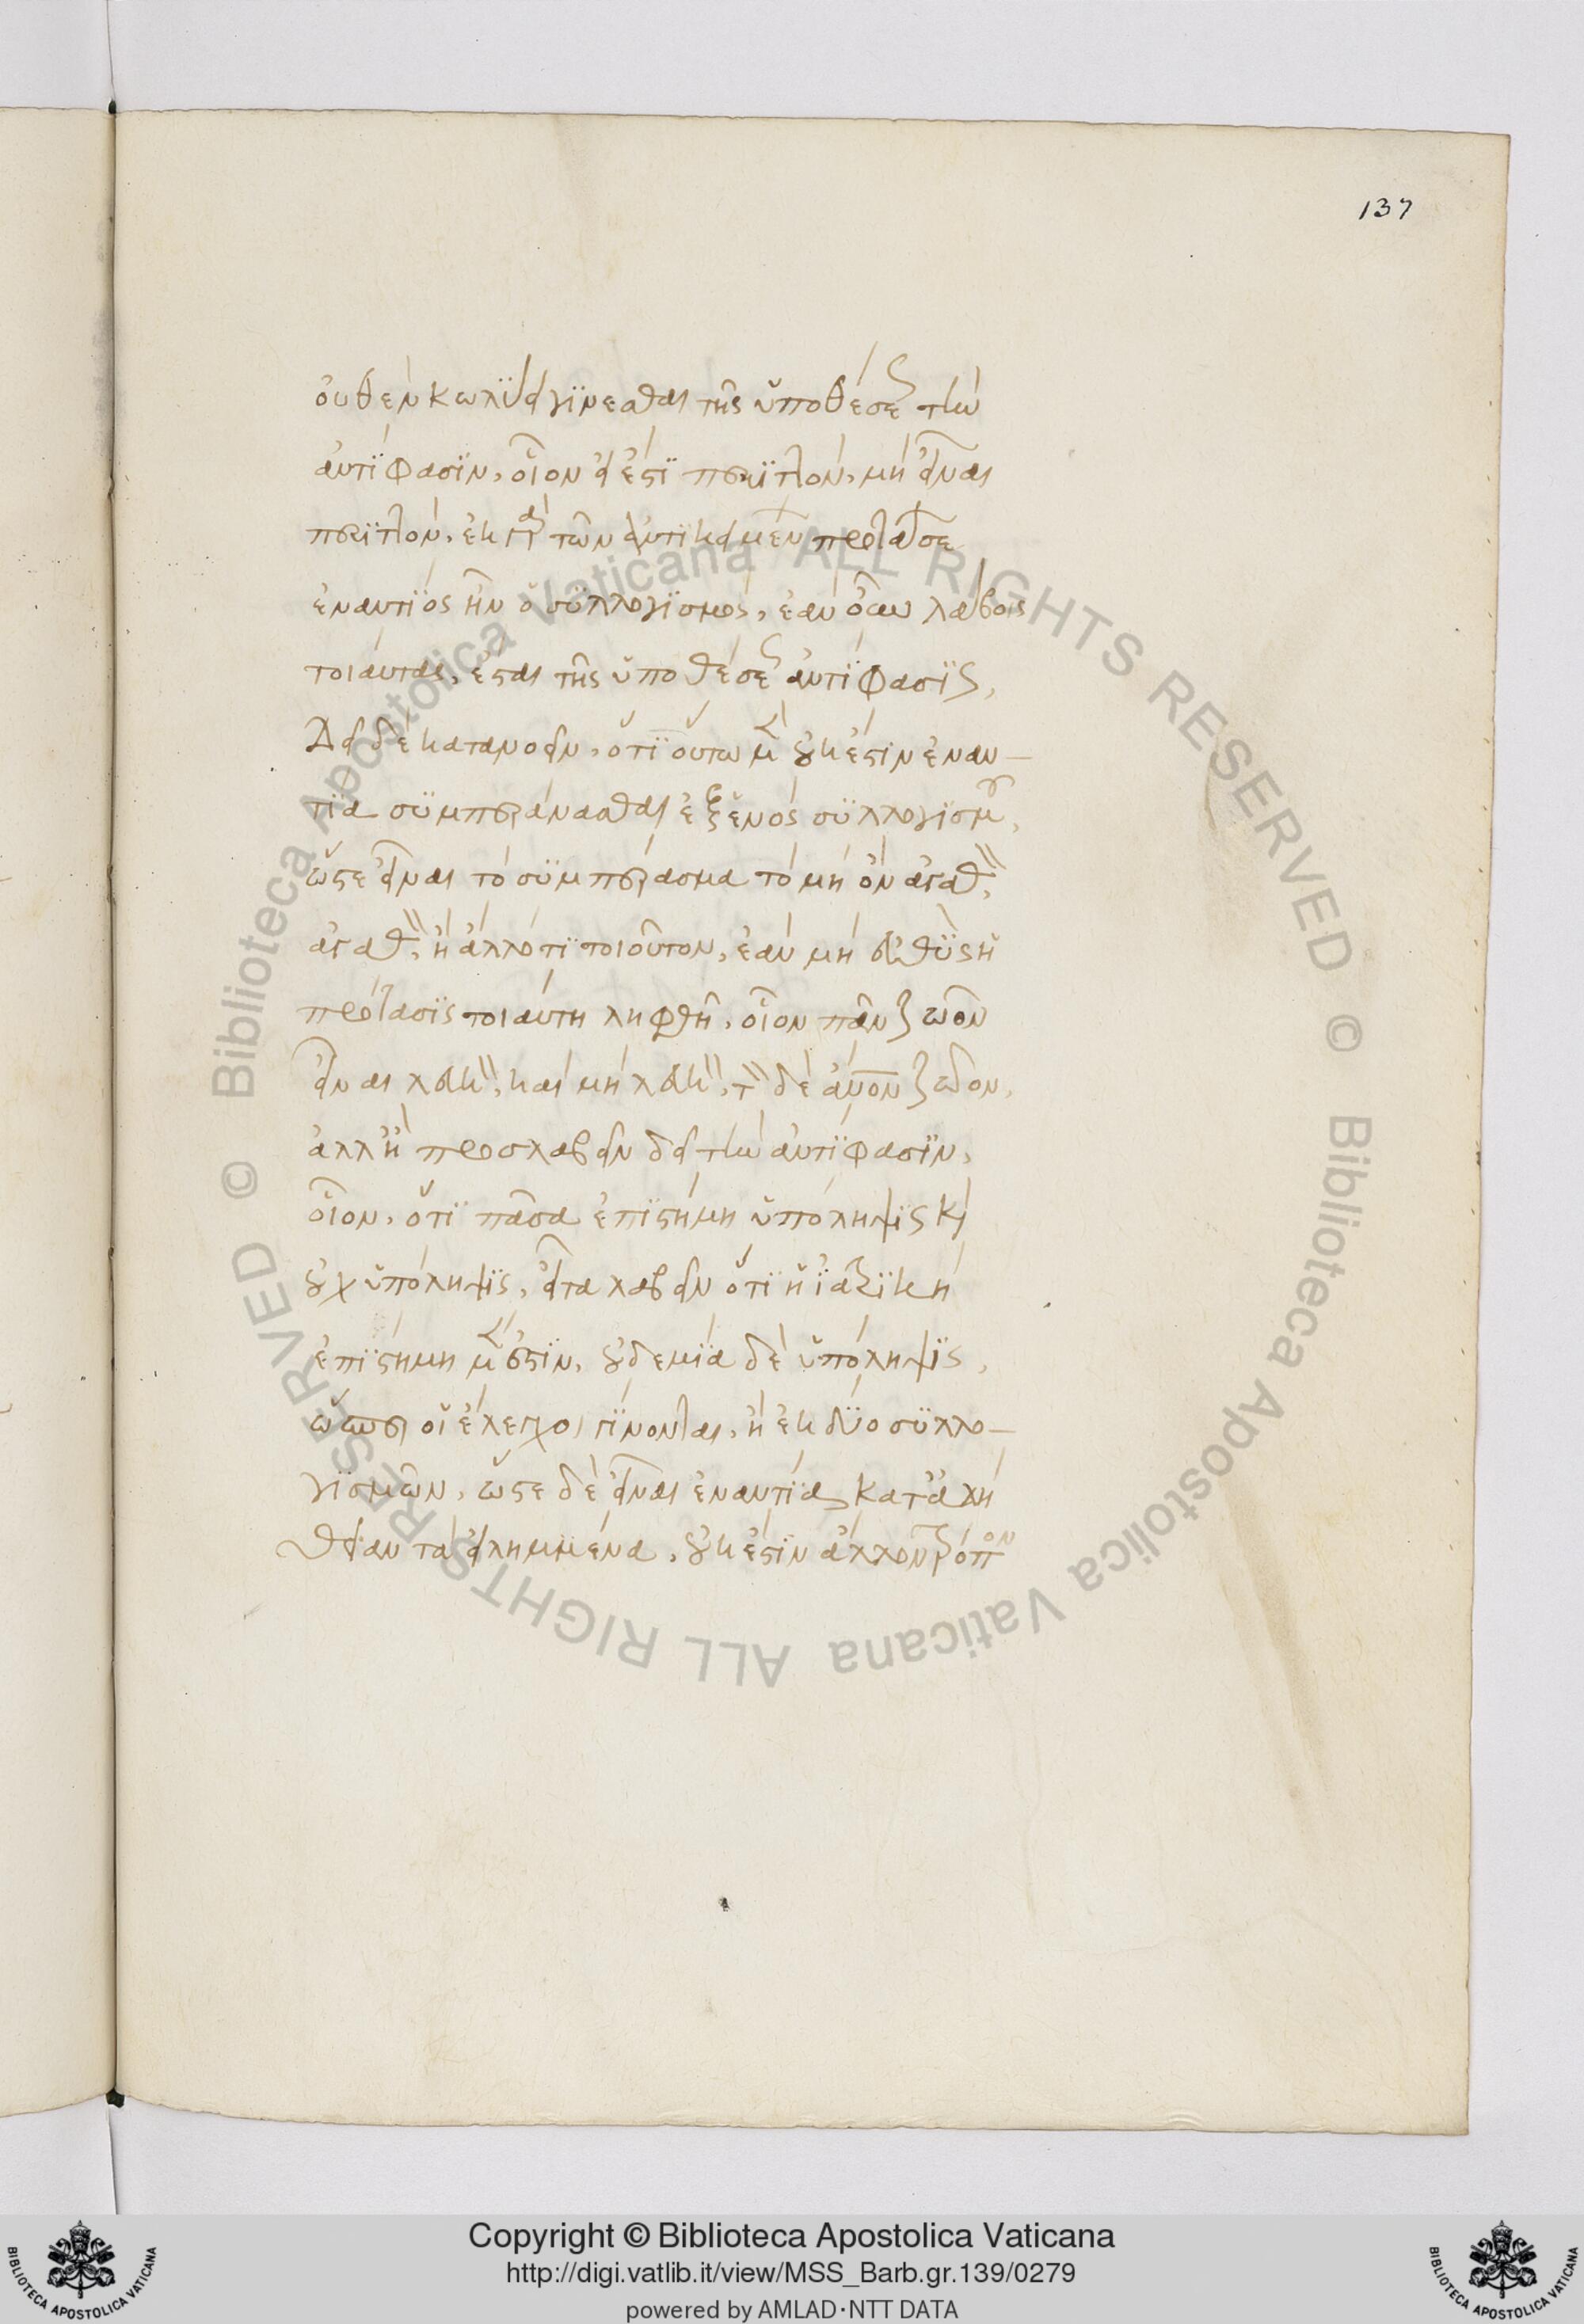 137
οὐθὲν κωλύει γίνεσθαι τῆς ὑποθέσεως τὴν
ἀντίφασιν, οἷον εἰ ἔστι περιττόν, μὴ εἶναι
περιττόν, ἐκ γὰρ τῶν ἀντικειμένων προτάσεων
ἐναντίος ἦν ὁ συλλογισμός, ἐὰν οὖν λάβοις
τοιαύτας, ἔσται τῆς ὑποθέσεως ἀντίφασις,
Δεῖ δὲ κατανοεῖν, ὅτι οὕτω μὲν οὐκ ἔστιν ἐναν–
τία συμπεράνασθαι ἐξ ἑνὸς συλλογισμοῦ,
ὥστε εἶναι τὸ συμπέρασμα τὸ μὴ ὂν ἀγαθόν,
ἀγαθόν, ἢ ἄλλό τι τοιοῦτον, ἐὰν μὴ εὐθὺς ἡ
πρότασις τοιαύτη ληφθῇ, οἷον πᾶν ζῷον
εἶναι λευκόν, καὶ μὴ λευκόν, τὸν δὲ ἄνον ζῷον,
ἀλλ' ἢ προσλαβεῖν δεῖ τὴν ἀντίφασιν,
οἷον, ὅτι πᾶσα ἐπιστήμη ὑπόληψις καὶ
οὐχ ὑπόληψις, εἶτα λαβεῖν ὅτι ἡ ἰατρικὴ
ἐπιστήμη μὲν ἐστίν, οὐδεμία δὲ ὑπόληψις,
ὥσπερ οἱ ἔλεγχοι γίνονται, ἢ ἐκ δύο συλλο–
γισμῶν, ὥστε δὲ εἶναι ἐναντία κατ' ἀλή
θειαν τὰ εἰλημμένα, οὐκ ἔστιν ἄλλον τρόπον
© Biblioteca Apostolica Vaticana ALL RIGHTS RESERVED © Biblioteca Apostolica Vaticana ALL RIGHTS RESERVED
Copyright © Biblioteca Apostolica Vaticana
http://digi.vatlib.it/view/MSS_Barb.gr.139/0279
powered by AMLAD·NTT DATA
BIBLIOTECA APOSTOLICA VATICANA
BIBLIOTECA APOSTOLICA VATICANA